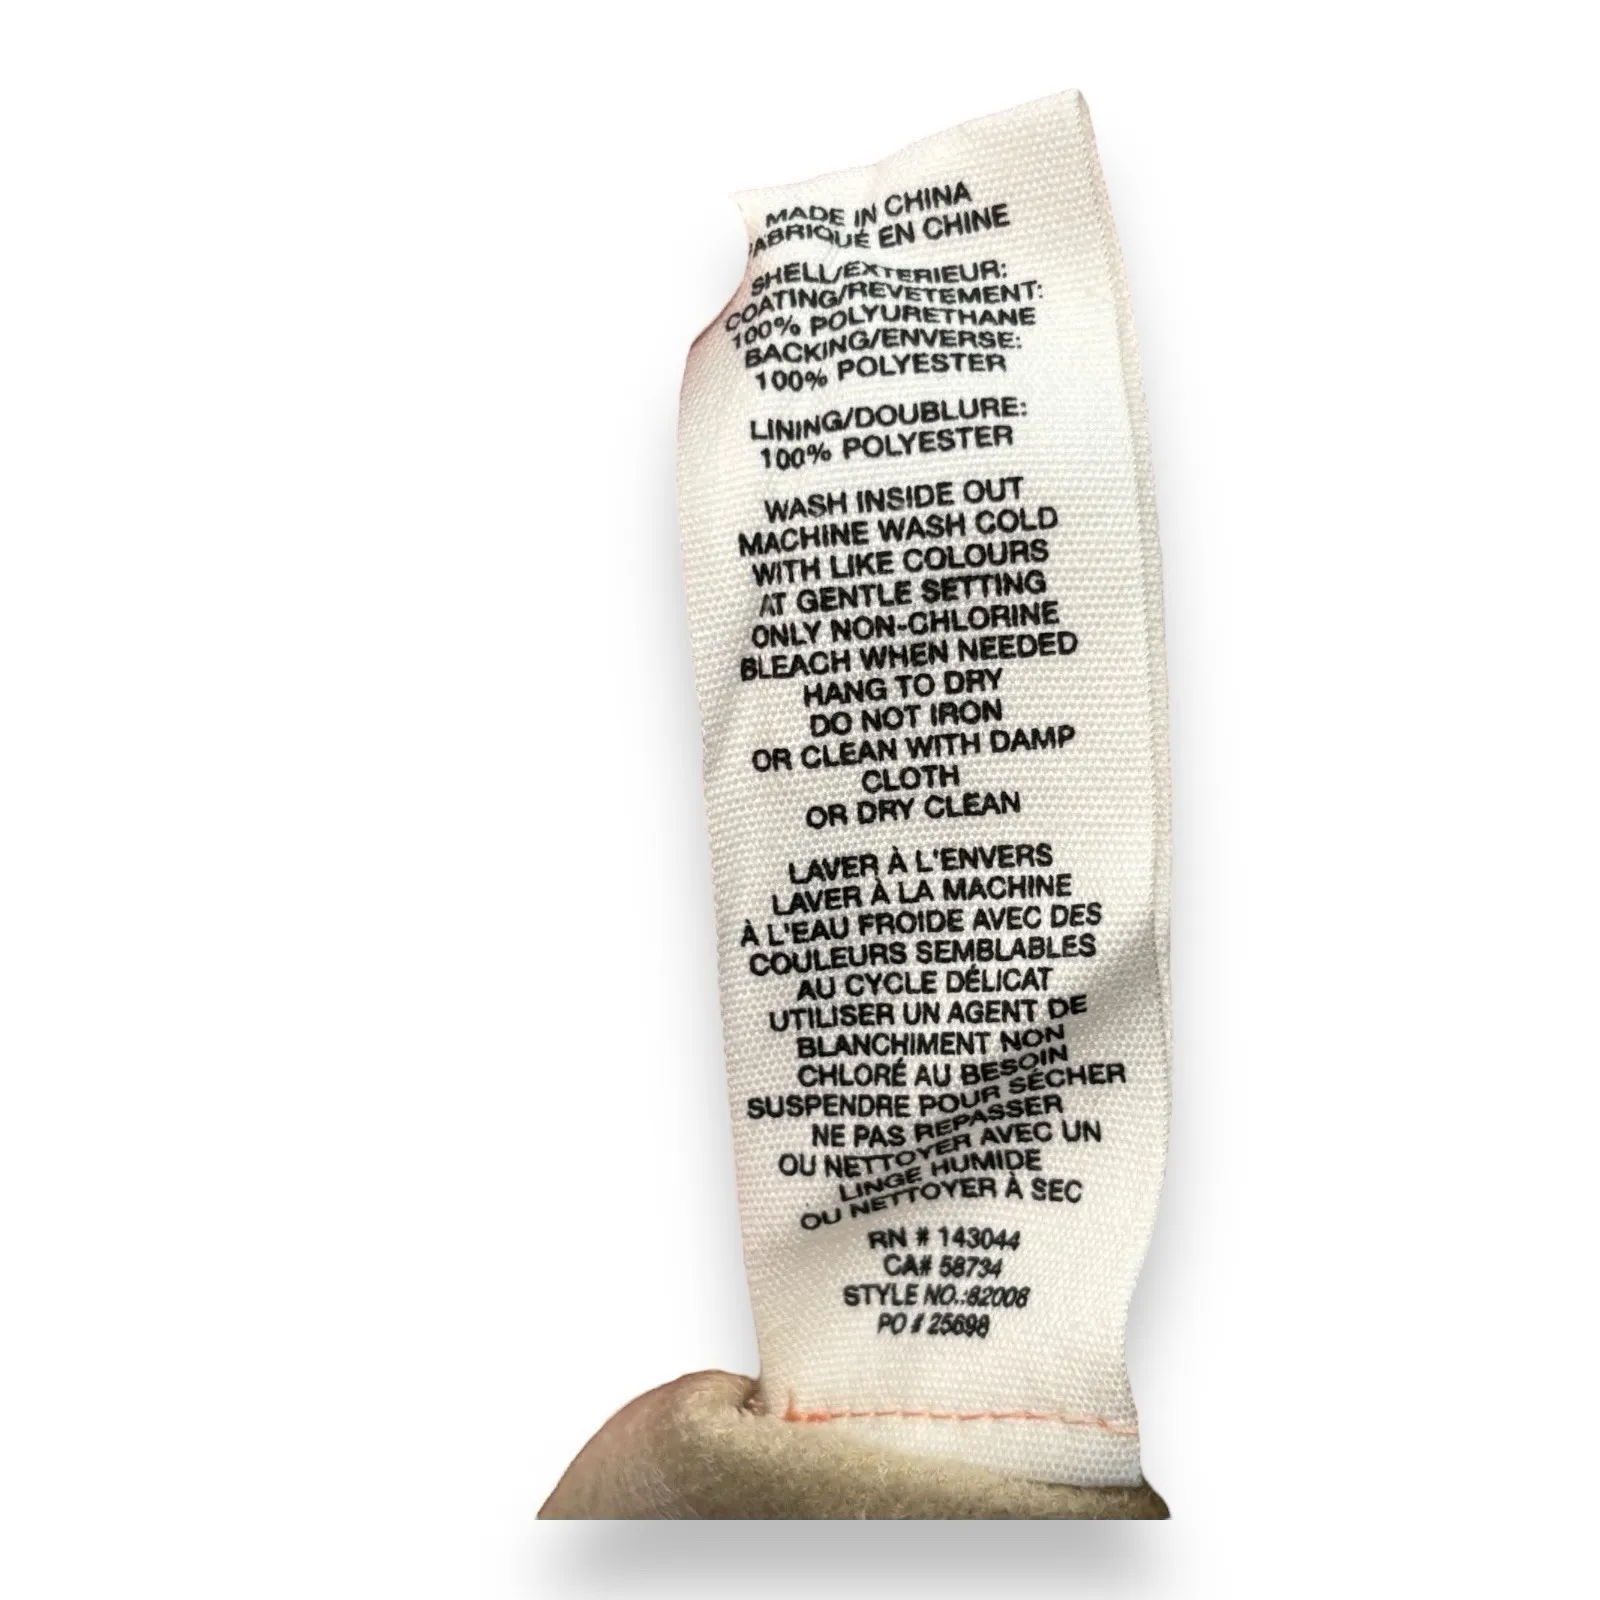 MADE IN CHINA
FABRIQUÉ EN CHINE
SHELL/EXTERIEUR:
COATING/REVETEMENT:
100% POLYURETHANE
BACKING/ENVERSE:
100% POLYESTER
LINING/DOUBLURE:
100% POLYESTER
WASH INSIDE OUT
MACHINE WASH COLD
WITH LIKE COLOURS
AT GENTLE SETTING
ONLY NON-CHLORINE
BLEACH WHEN NEEDED
HANG TO DRY
DO NOT IRON
OR CLEAN WITH DAMP
CLOTH
OR DRY CLEAN
LAVER À L'ENVERS
LAVER À LA MACHINE
À L'EAU FROIDE AVEC DES
COULEURS SEMBLABLES
AU CYCLE DÉLICAT
UTILISER UN AGENT DE
BLANCHIMENT NON
CHLORÉ AU BESOIN
SUSPENDRE POUR SÉCHER
NE PAS REPASSER
OU NETTOYER AVEC UN
LINGE HUMIDE
OU NETTOYER À SEC
RN # 143044
CA# 58734
STYLE NO.:82008
PO # 25698